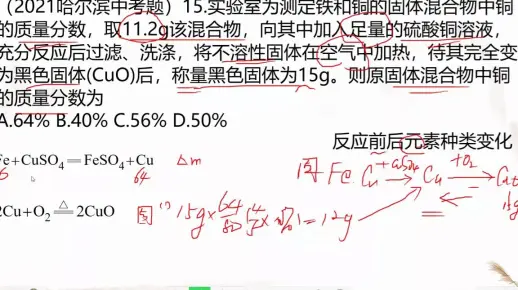 (2021哈尔滨中考题) 15.实验室为测定铁和铜的固体混合物中铜
的质量分数，取11.2g该混合物，向其中加入足量的硫酸铜溶液，
充分反应后过滤、洗涤，将不溶性固体在空气中加热，待其完全变
为黑色固体(CuO)后，称量黑色固体为15g。则原固体混合物中铜
的质量分数为
A.64% B.40% C.56% D.50%
反应前后元素种类变化
Fe+CuSO₄=FeSO₄+Cu Δm
64
固 Fe Cu +CuSO₄ Cu +O₂
2Cu+O₂ △ 2CuO
15g× 64/80 =12g